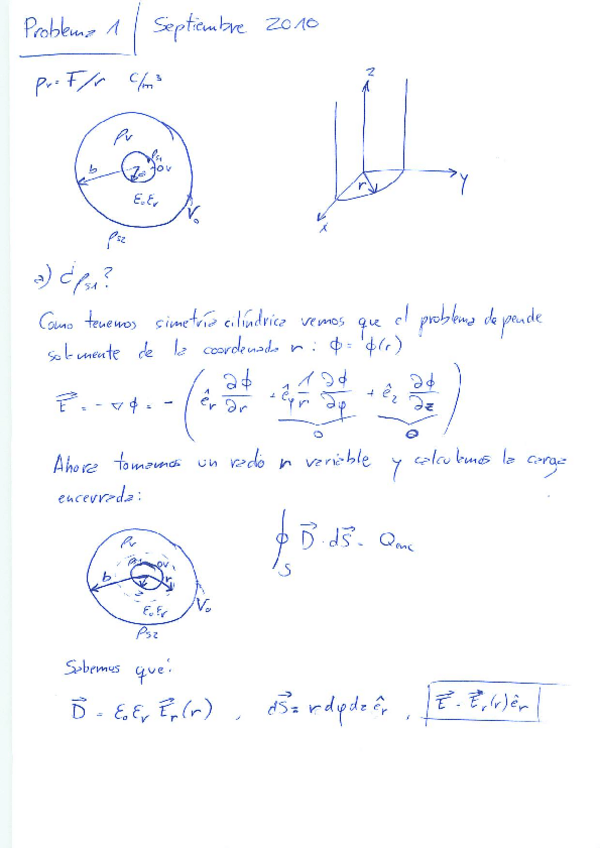 Problema 1 | Septiembre 2010
ρv = F/r C/m³
ρv
ρs1
b
0V
ε₀εr
V₀
ρs2
z
r
y
x
a) ¿ρs1?
Como tenemos simetría cilíndrica vemos que el problema depende
solamente de la coordenada r : ϕ = ϕ(r)
E⃗ = -∇ϕ = - ( êr ∂ϕ/∂r + êφ 1/r ∂ϕ/∂φ + êz ∂ϕ/∂z )
0 0
Ahora tomamos un radio r variable y calculamos la carga
encerrada:
ρv
0V
b
r
ε₀εr
V₀
ρs2
∮S D⃗ · dS⃗ = Qenc
Sabemos que:
D⃗ = ε₀εr E⃗r(r) , dS⃗ = r dφ dz êr , E⃗ = E⃗r(r) êr